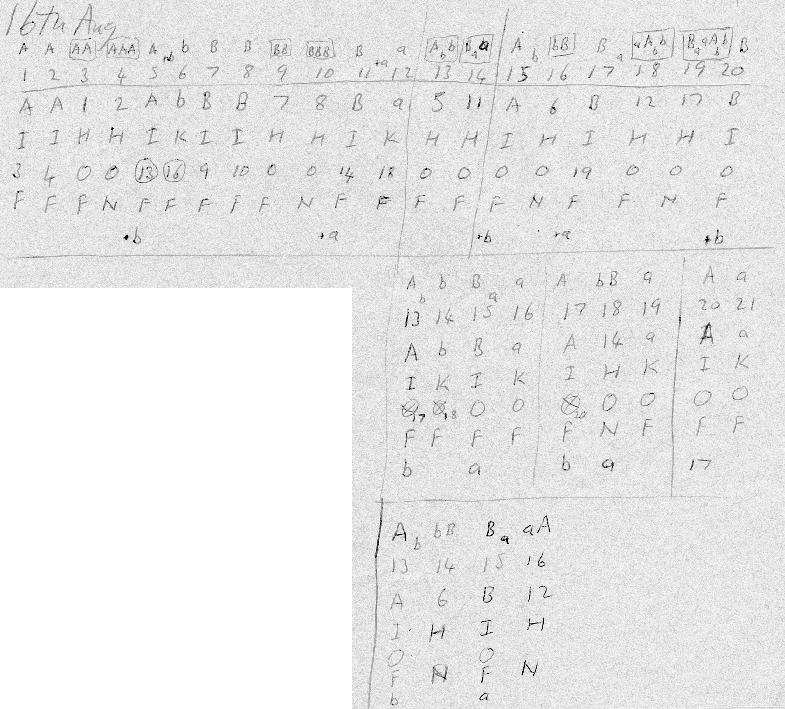 16th Aug
A A AA AAA A b b B B BB BBB B a a A b b B a a A b bB B a aA b b B a aA b b B
1 2 3 4 5 6 7 8 9 10 11 +a 12 13 14 15 16 17 18 19 20
A A 1 2 A b B B 7 8 B a 5 11 A 6 B 12 17 B
I I H H I K I I H H I K H H I H I H H I
3 4 0 0 13 16 9 10 0 0 14 18 0 0 0 0 19 0 0 0
F F F N F F F F F N F F F F F N F F N F
+b +a +b +a +b
A b b B a a A bB a A a
13 14 15 16 17 18 19 20 21
A b B a A 14 a A a
I K I K I H K I K
17 18 0 0 20 0 0 0 0
F F F F F N F F F
b a b a 17
A b bB B a aA
13 14 15 16
A 6 B 12
I H I H
0 0
F N F N
b a